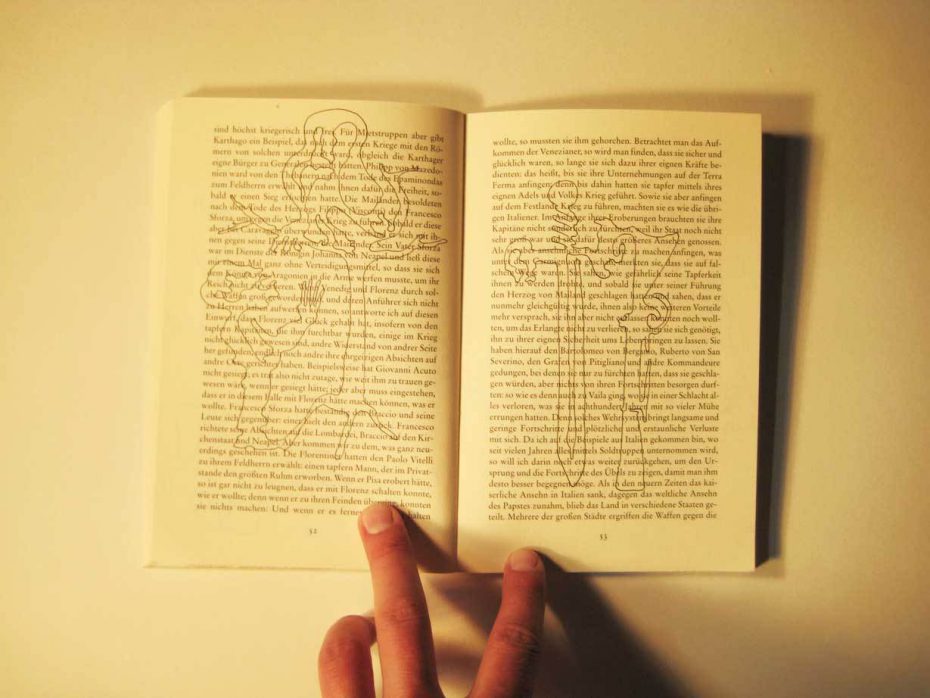 sind höchst kriegerisch und frei. Für Mietstruppen aber gibt
Karthago ein Beispiel, das nach dem ersten Kriege mit den Rö-
mern von solchen unterdrückt ward, obgleich die Karthager
eigne Bürger zu Generalen bestellt hatten. Philipp von Mazedo-
nien ward von den Thebanern nach dem Tode des Epaminondas
zum Feldherrn erwählt und nahm ihnen dafür die Freiheit, so-
bald er einen Sieg erfochten hatte. Die Mailänder besoldeten
nach dem Tode des Herzogs Filippo (Visconti) den Francesco
Sforza, um gegen die Venezianer Krieg zu führen. Sobald er diese
aber bei Caravaggio überwunden hatte, verband er sich mit ih-
nen gegen seine Dienstherren, die Mailänder. Sein Vater Sforza
war im Dienste der Königin Johanna von Neapel und ließ diese
mit einem Mal ganz ohne Verteidigungsmittel, so dass sie sich
dem König von Aragonien in die Arme werfen musste, um ihr
Reich nicht zu verlieren. Wenn Venedig und Florenz durch sol-
che Waffen groß geworden sind, und deren Anführer sich nicht
zu Herren haben aufwerfen können, so antworte ich auf diesen
Einwurf, dass Florenz viel Glück gehabt hat, insofern von den
tapfern Kapitänen, die ihm furchtbar wurden, einige im Krieg
nicht glücklich gewesen sind, andre Widerstand von andrer Seite
her gefunden, endlich noch andre ihre ehrgeizigen Absichten auf
andre Orte gerichtet haben. Beispielsweise hat Giovanni Acuto
nicht gesiegt; es trat also nicht zutage, wie weit ihm zu trauen ge-
wesen wäre, wenn er gesiegt hätte; jeder aber muss eingestehen,
dass er in diesem Falle mit Florenz hätte machen können, was er
wollte. Francesco Sforza hatte beständig den Braccio und seine
Leute sich gegenüber: einer hielt den andern zurück. Francesco
richtete seine Absichten auf die Lombardei, Braccio auf den Kir-
chenstaat und Neapel. Aber kommen wir zu dem, was ganz neu-
erdings geschehen ist. Die Florentiner hatten den Paolo Vitelli
zu ihrem Feldherrn erwählt: einen tapfern Mann, der im Privat-
stande den größten Ruhm erworben. Wenn er Pisa erobert hätte,
so ist gar nicht zu leugnen, dass er mit Florenz schalten konnte,
wie er wollte; denn wenn er zu ihren Feinden überging, konnten
sie nichts machen. Und wenn er es ferner halten
52
wollte, so mussten sie ihm gehorchen. Betrachtet man das Auf-
kommen der Venezianer, so wird man finden, dass sie sicher und
glücklich waren, so lange sie sich dazu ihrer eignen Kräfte be-
dienten: das heißt, bis sie ihre Unternehmungen auf der Terra
Ferma anfingen; denn bis dahin hatten sie tapfer mittels ihres
eignen Adels und Volkes Krieg geführt. Sowie sie aber anfingen
auf dem Festlande Krieg zu führen, machten sie es wie die übri-
gen Italiener. Im Anfange ihrer Eroberungen brauchten sie ihre
Kapitäne nicht sonderlich zu fürchten, weil ihr Staat noch nicht
sehr groß war und sie dafür desto größeres Ansehen genossen.
Als sie aber ansehnliche Fortschritte zu machen anfingen, was
unter dem Carmagnola geschah, merkten sie, dass sie auf fal-
schem Wege waren. Sie sahen, wie gefährlich seine Tapferkeit
ihnen zu werden drohte, und sobald sie unter seiner Führung
den Herzog von Mailand geschlagen hatten und sahen, dass er
nunmehr gleichgültig wurde, ihnen also keine weiteren Vorteile
mehr versprach, sie ihn aber nicht entlassen konnten noch woll-
ten, um das Erlangte nicht zu verlieren, so sahen sie sich genötigt,
ihn zu ihrer eignen Sicherheit ums Leben bringen zu lassen. Sie
haben hierauf den Bartolomeo von Bergamo, Ruberto von San
Severino, den Grafen von Pitigliano und andre Kommandeure
gedungen, bei denen sie nur zu fürchten hatten, dass sie geschla-
gen würden, aber nicht von ihren Fortschritten besorgen durf-
ten: so wie es denn auch zu Vaila ging, wo sie in einer Schlacht al-
les verloren, was sie in achthundert Jahren mit so vieler Mühe
errungen hatten. Denn solches Wehrsystem bringt langsame und
geringe Fortschritte und plötzliche und erstaunliche Verluste
mit sich. Da ich auf die Beispiele aus Italien gekommen bin, wo
seit vielen Jahren alles mittels Soldtruppen unternommen wird,
so will ich darin noch etwas weiter zurückgehen, um den Ur-
sprung und die Fortschritte des Übels zu zeigen, damit man ihm
desto besser begegnen möge. Als in den neuern Zeiten das kai-
serliche Ansehn in Italien sank, dagegen das weltliche Ansehn
des Papstes zunahm, blieb das Land in verschiedene Staaten ge-
teilt. Mehrere der großen Städte ergriffen die Waffen gegen die
53